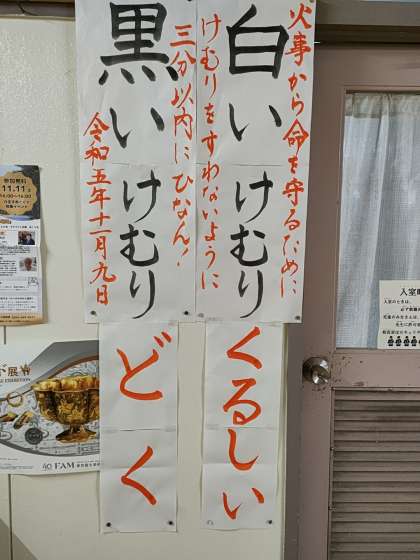 火事から命を守るために
白いけむり
くるしい
けむりをすわないように
三分以内にひなん！
黒いけむり
どく
令和五年十一月九日
参加無料
11.11
入室
入室のときは、
FAM